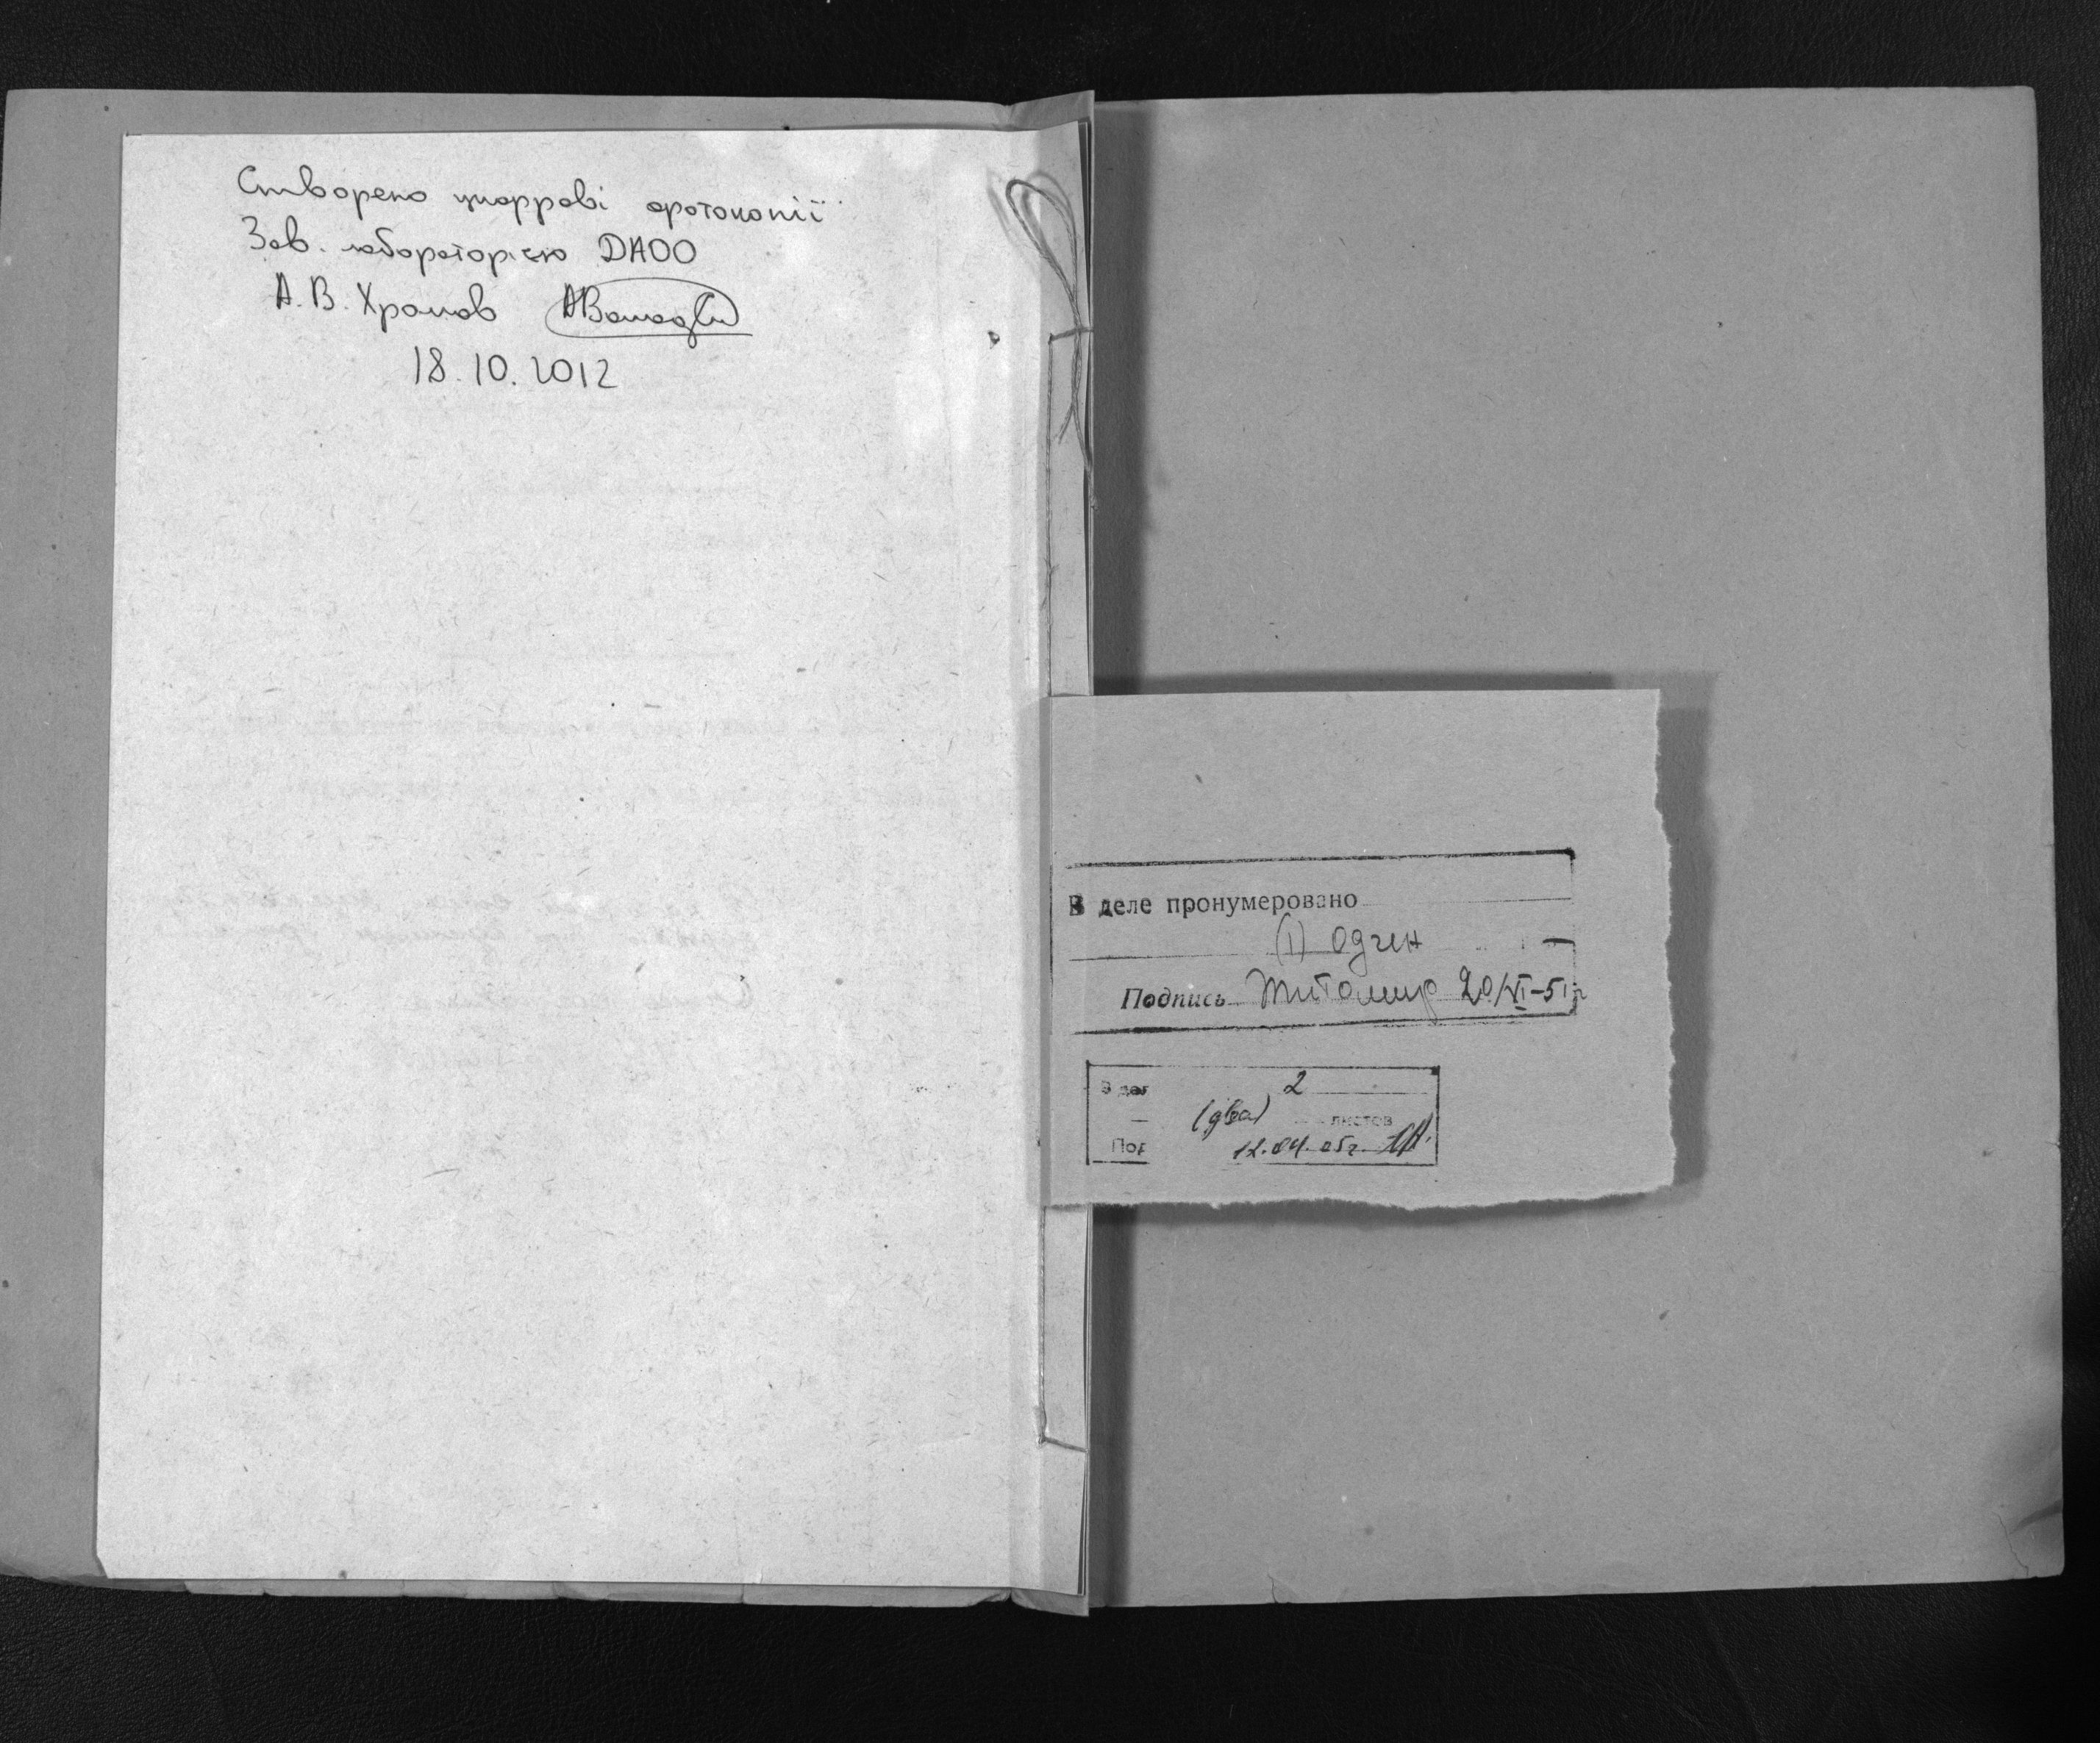 Створено цифрові фотокопії
Зав. лабораторією ДАОО
А.В. Храмов
18.10.2012
В деле пронумеровано
(1) один
Подпись Житомир 20/VI-51г
В дел 2
(два) листов
Под 12.04.05г.